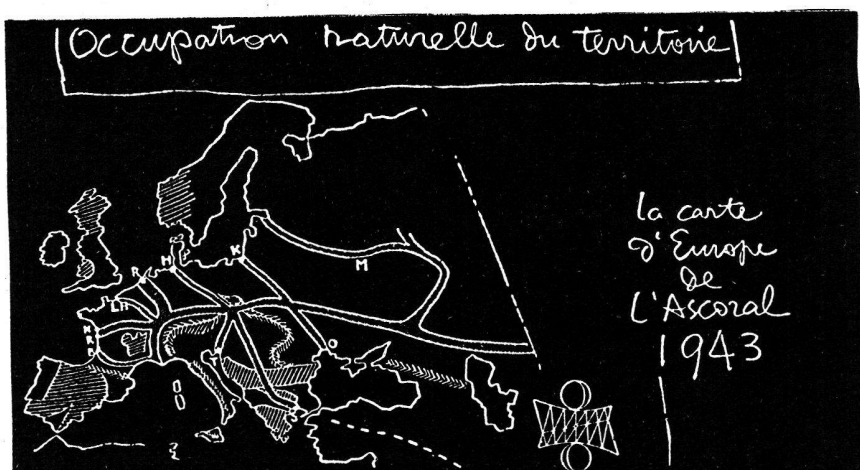 Occupation naturelle du territoire
la carte
d'Europe
de
L'Ascoral
1943
H
K
R
M
LH
N
R
B
O
S